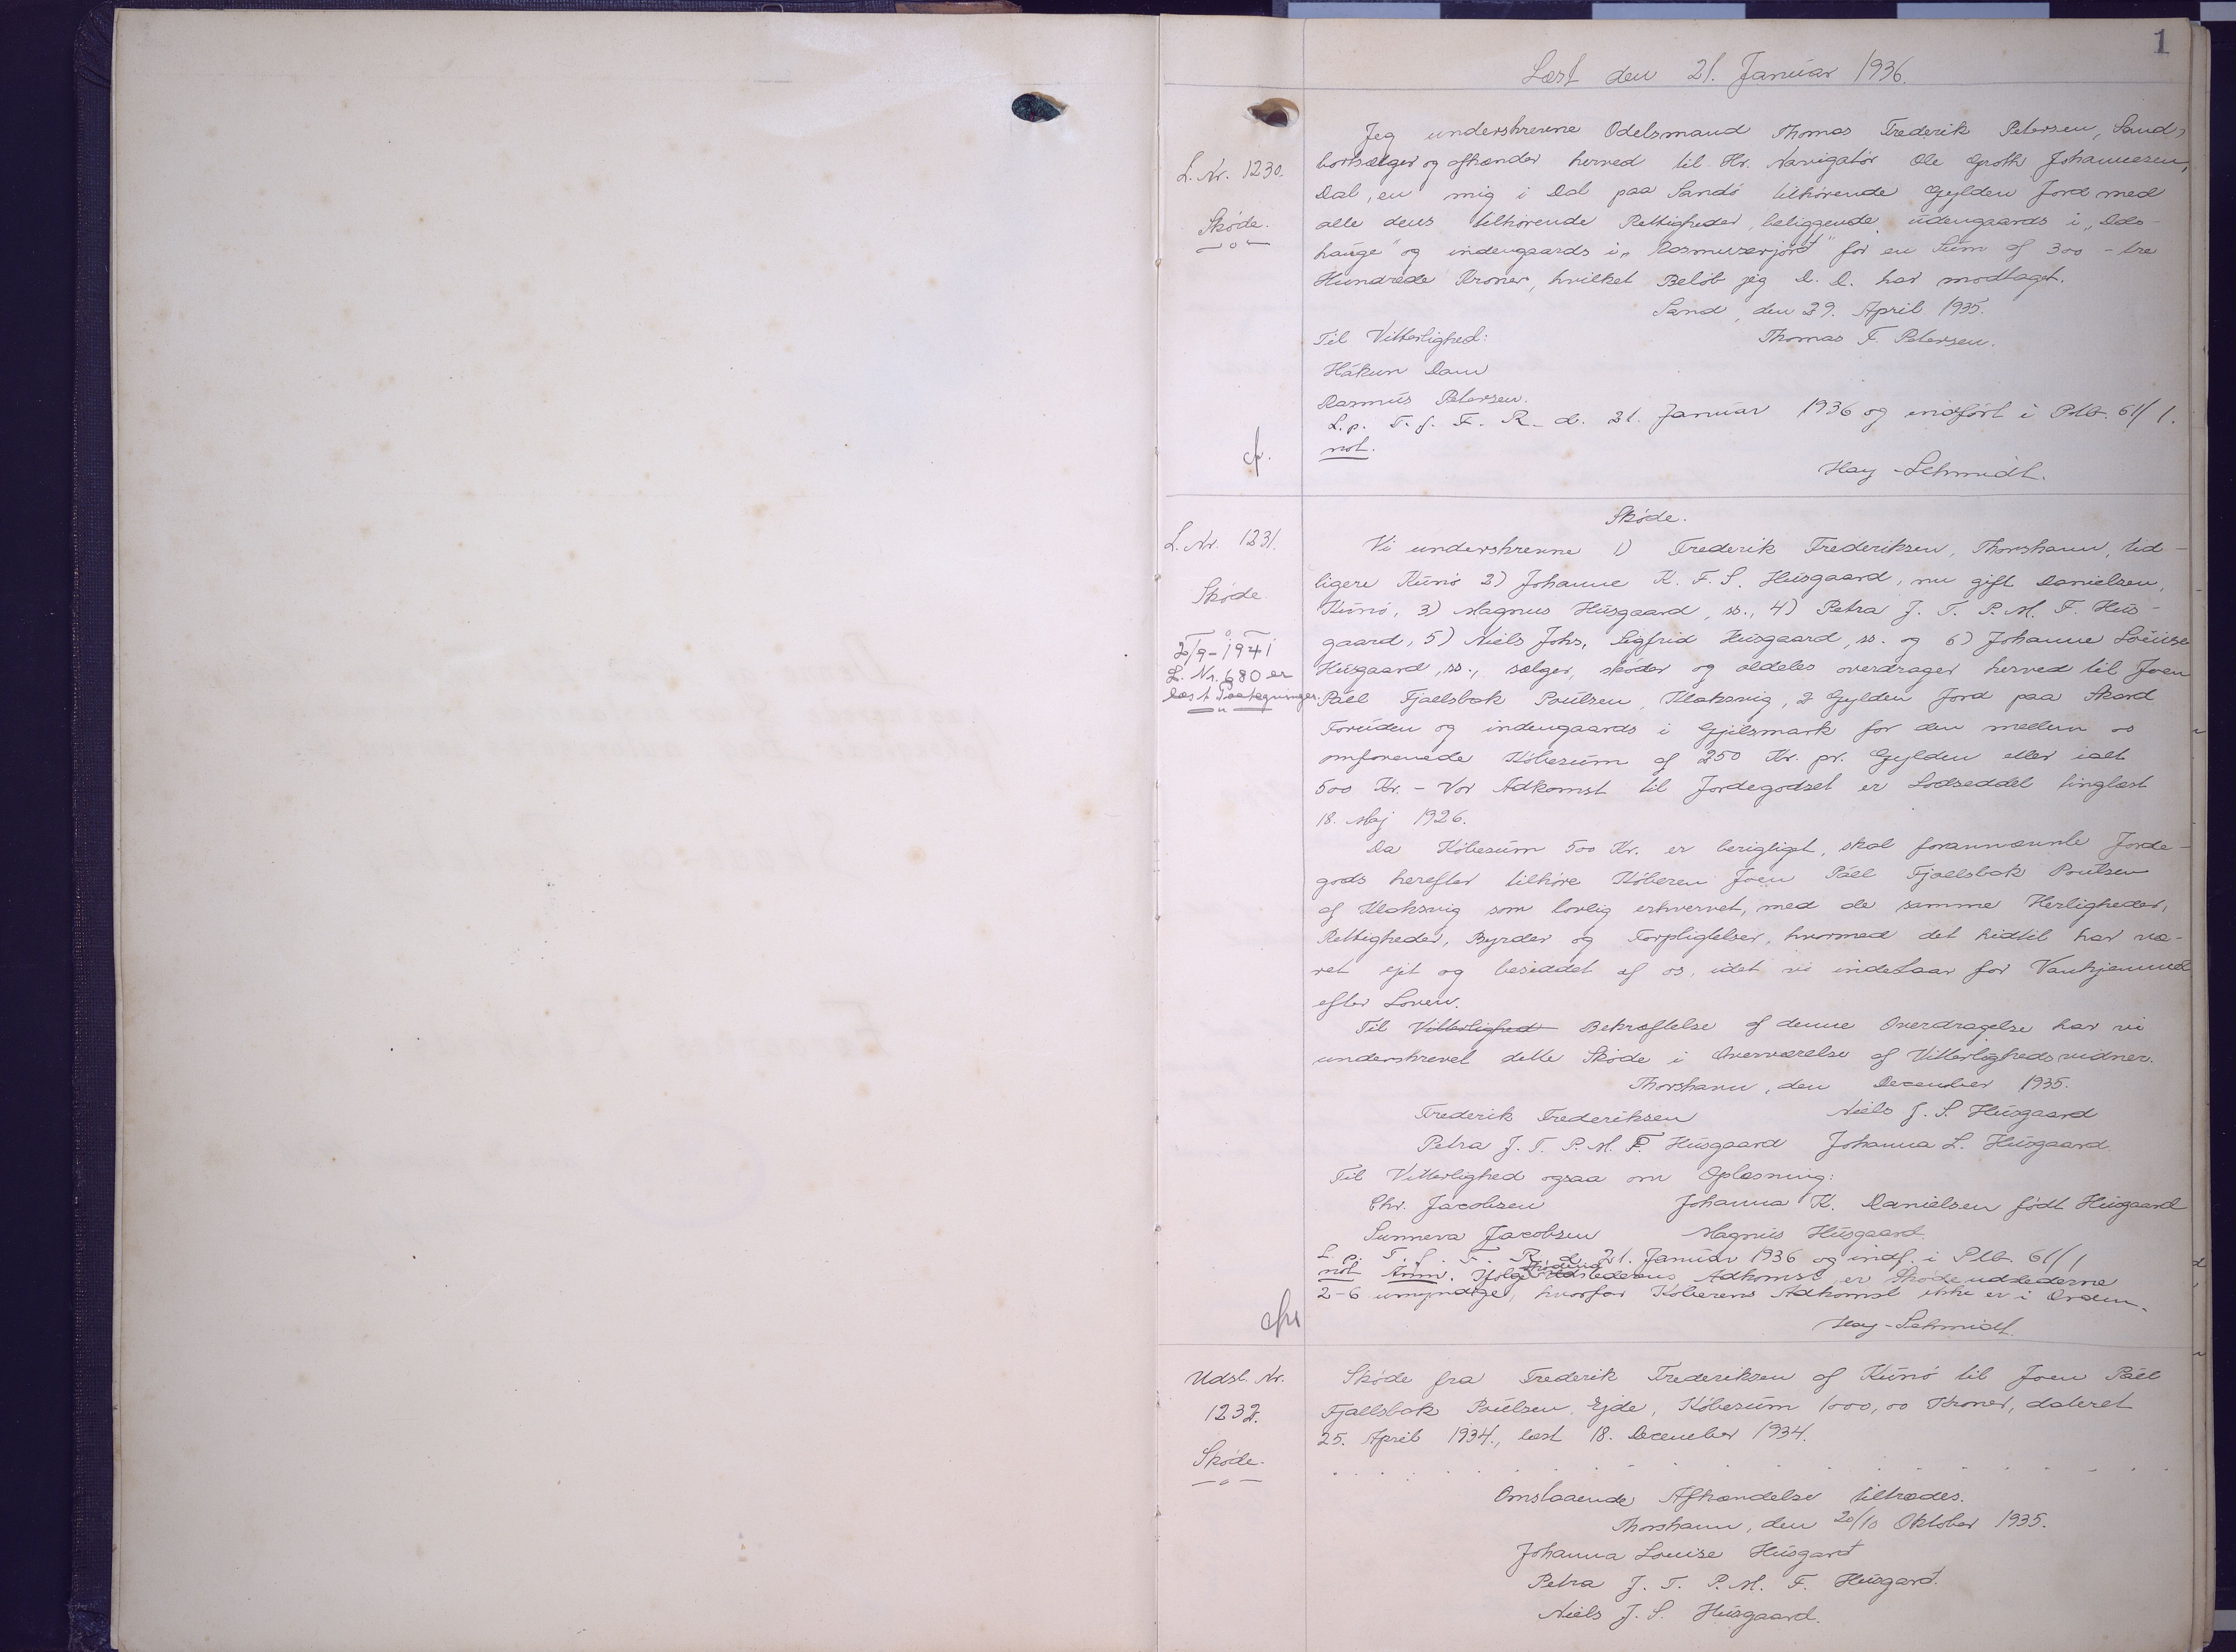 1
Læst den 21. Januar 1936.
L. Nr. 1230.
Skøde.
Jeg underskrevne Odelsmand Thomas Frederik Petersen, Sand,
bortsælger og afhænder herved til Hr. Navigatør Ole Groth Johannesen,
Dal, en mig i Dal paa Sandø tilhørende Gylden Jord med
alle dens tilhørende Rettigheder, beliggende udengaards i „Dals-
hauge" og indengaards i „Rasmusarjørd" for en Sum af 300 - tre
Hundrede Kroner, hvilket Beløb jeg D. D. har modtaget.
Sand, den 29. April 1935.
Til Vitterlighed: Thomas F. Petersen.
Hákun Dam
Rasmus Petersen.
L. p. T. f. F. R. d. 21. Januar 1936 og indført i Ptb. 61/1.
not.
Hay-Schmidt.
L. Nr. 1231.
Skøde.
2/9-1941
L. Nr. 680 er
læst Paategninger.
Skøde.
Vi underskrevne 1) Frederik Frederiksen, Thorshavn, tid-
ligere Kunø 2) Johanne K. F. S. Husgaard, nu gift Danielsen,
Kunø, 3) Magnus Husgaard, ss., 4) Petra J. T. P. M. F. Hus-
gaard, 5) Niels Johs. Sigfrid Husgaard, ss. og 6) Johanne Louise
Husgaard, ss., sælger, skøder og aldeles overdrager herved til Joen
Páll Fjallsbak Poulsen, Klaksvig, 2 Gylden Jord paa Skard
Foruden og indengaards i Gjilsmark for den mellem os
omforenede Købesum af 250 Kr. pr. Gylden eller ialt
500 Kr. - Vor Adkomst til Jordegodset er Lodseddel tinglæst
18. Maj 1926.
Da Købesum 500 Kr. er berigtiget, skal forannævnte Jorde-
gods herefter tilhøre Køberen Joen Páll Fjallsbak Poulsen
af Klaksvig som lovlig erhvervet, med de samme Herligheder,
Rettigheder, Byrder og Forpligtelser, hvormed det hidtil har væ-
ret ejet og besiddet af os, idet vi indestaar for Vanhjemmel
efter Loven.
Til Vitterlighed Bekræftelse af denne Overdragelse har vi
underskrevet dette Skøde i Overværelse af Vitterlighedsvidner.
Thorshavn, den December 1935.
Frederik Frederiksen Niels J. S. Husgaard
Petra J. T. P. M. F. Husgaard Johanna L. Husgaard.
Til Vitterlighed ogsaa om Oplæsning:
Chr. Jacobsen Johanna K. Danielsen født Husgaard
Sunneva Jacobsen Magnus Husgaard.
L. p. T. f. F. R. d. 21. Januar 1936 og indf. i Ptb. 61/1
not Anm. Ifølge Udstederens Adkomst er Skødeudstederne
2-6 umyndige, hvorfor Køberens Adkomst ikke er i Orden.
Hay-Schmidt.
Udsl. Nr.
1232.
Skøde.
Skøde fra Frederik Frederiksen af Kunø til Joen Páll
Fjallsbak Poulsen, Ejde, Købesum 1000,00 Kroner, dateret
25. April 1934, læst 18. December 1934.
Omstaaende Afhændelse tiltrædes.
Thorshavn, den 20/10 Oktober 1935.
Johanna Louise Husgard
Petra J. T. P. M. F. Husgard.
Niels J. S. Husgaard.